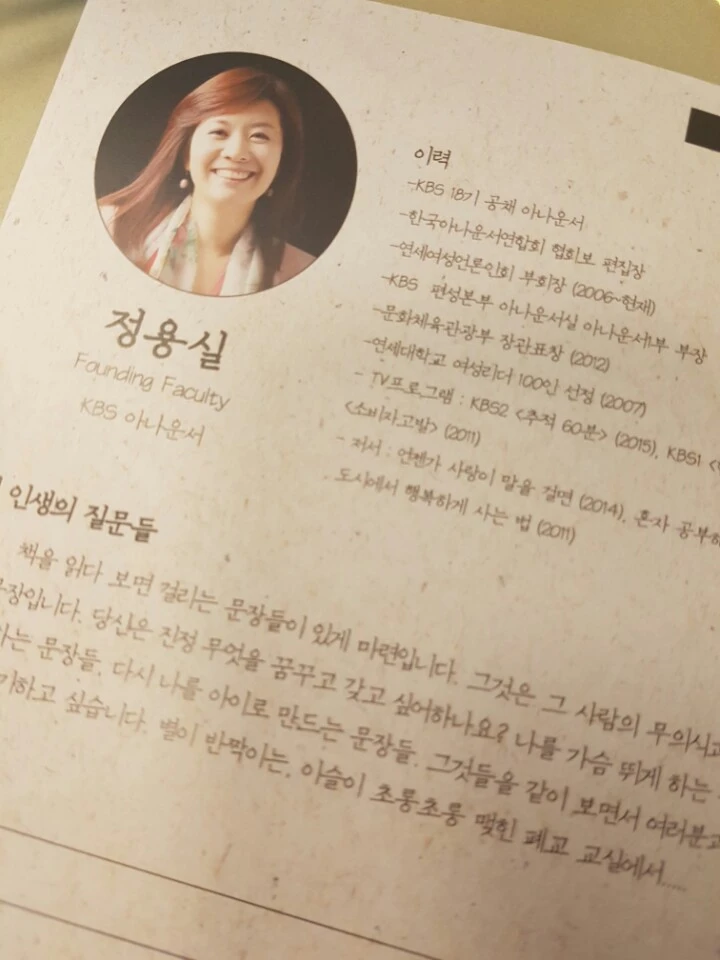 정용실
Founding Faculty
KBS 아나운서
이력
-KBS 18기 공채 아나운서
-한국아나운서연합회 협회보 편집장
-연세여성언론인회 부회장 (2006~현재)
-KBS 편성본부 아나운서실 아나운서1부 부장
-문화체육관광부 장관표창 (2012)
-연세대학교 여성리더 100인 선정 (2007)
- TV프로그램 : KBS2 <추적 60분> (2015), KBS1
<소비자고발> (2011)
- 저서 : 언젠가 사랑이 말을 걸면 (2014), 혼자 공부하
도시에서 행복하게 사는 법 (2011)
인생의 질문들
책을 읽다 보면 걸리는 문장들이 있게 마련입니다. 그것은 그 사람의 무의식과
문장입니다. 당신은 진정 무엇을 꿈꾸고 갖고 싶어하나요? 나를 가슴 뛰게 하는
하는 문장들. 다시 나를 아이로 만드는 문장들. 그것들을 같이 보면서 여러분과
기하고 싶습니다. 별이 반짝이는, 이슬이 초롱초롱 맺힌 폐교 교실에서.....